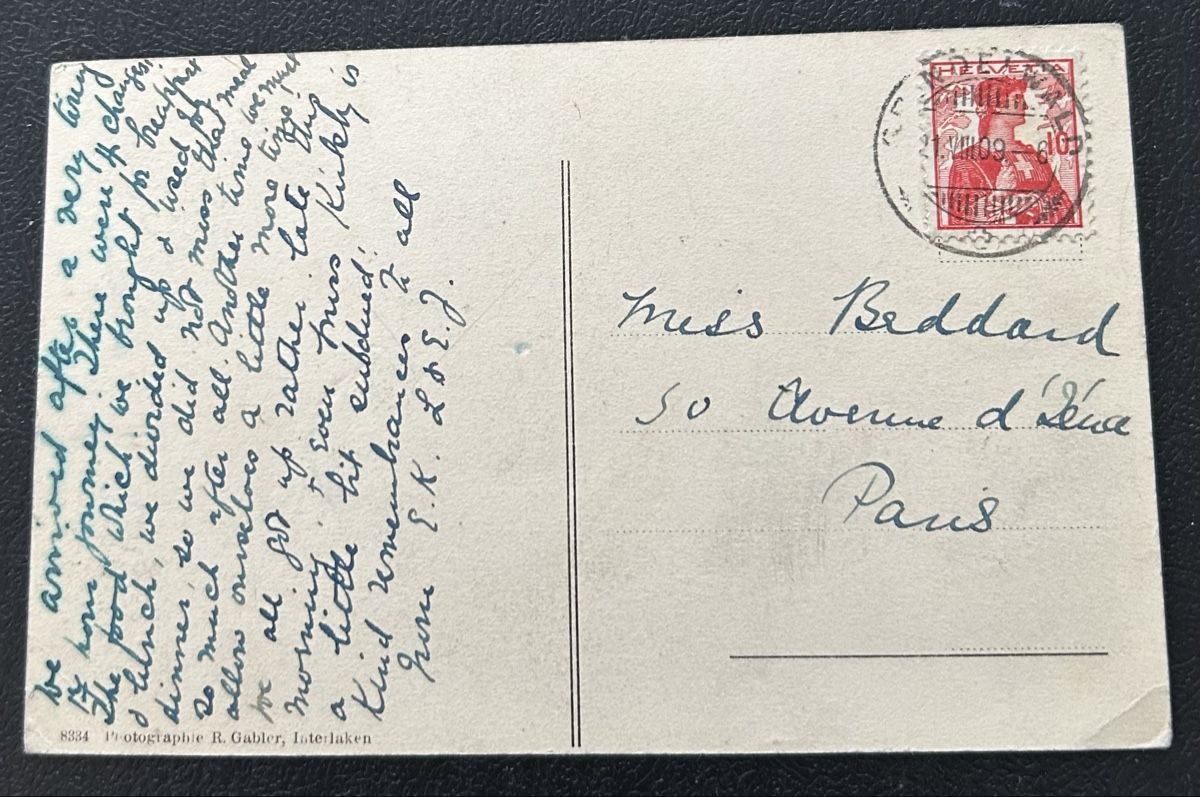 We arrived after a very tiring
17 hours journey. There were 4 changes.
The food which we brought for breakfast
& lunch, we divided up & used for
dinner, so we did not miss that meal
so much after all. Another time we must
allow ourselves a little more time.
We all got up rather late this
morning, & even Miss Kirkby is
a little bit subdued.
Kind remembrances to all
from E. K. L & E. J.
8334 Photographie R. Gabler, Interlaken
HELVETIA
10
GRINDELWALD
1.VIII.09.-6
Miss Beddard
50 Avenue d'Iéna
Paris